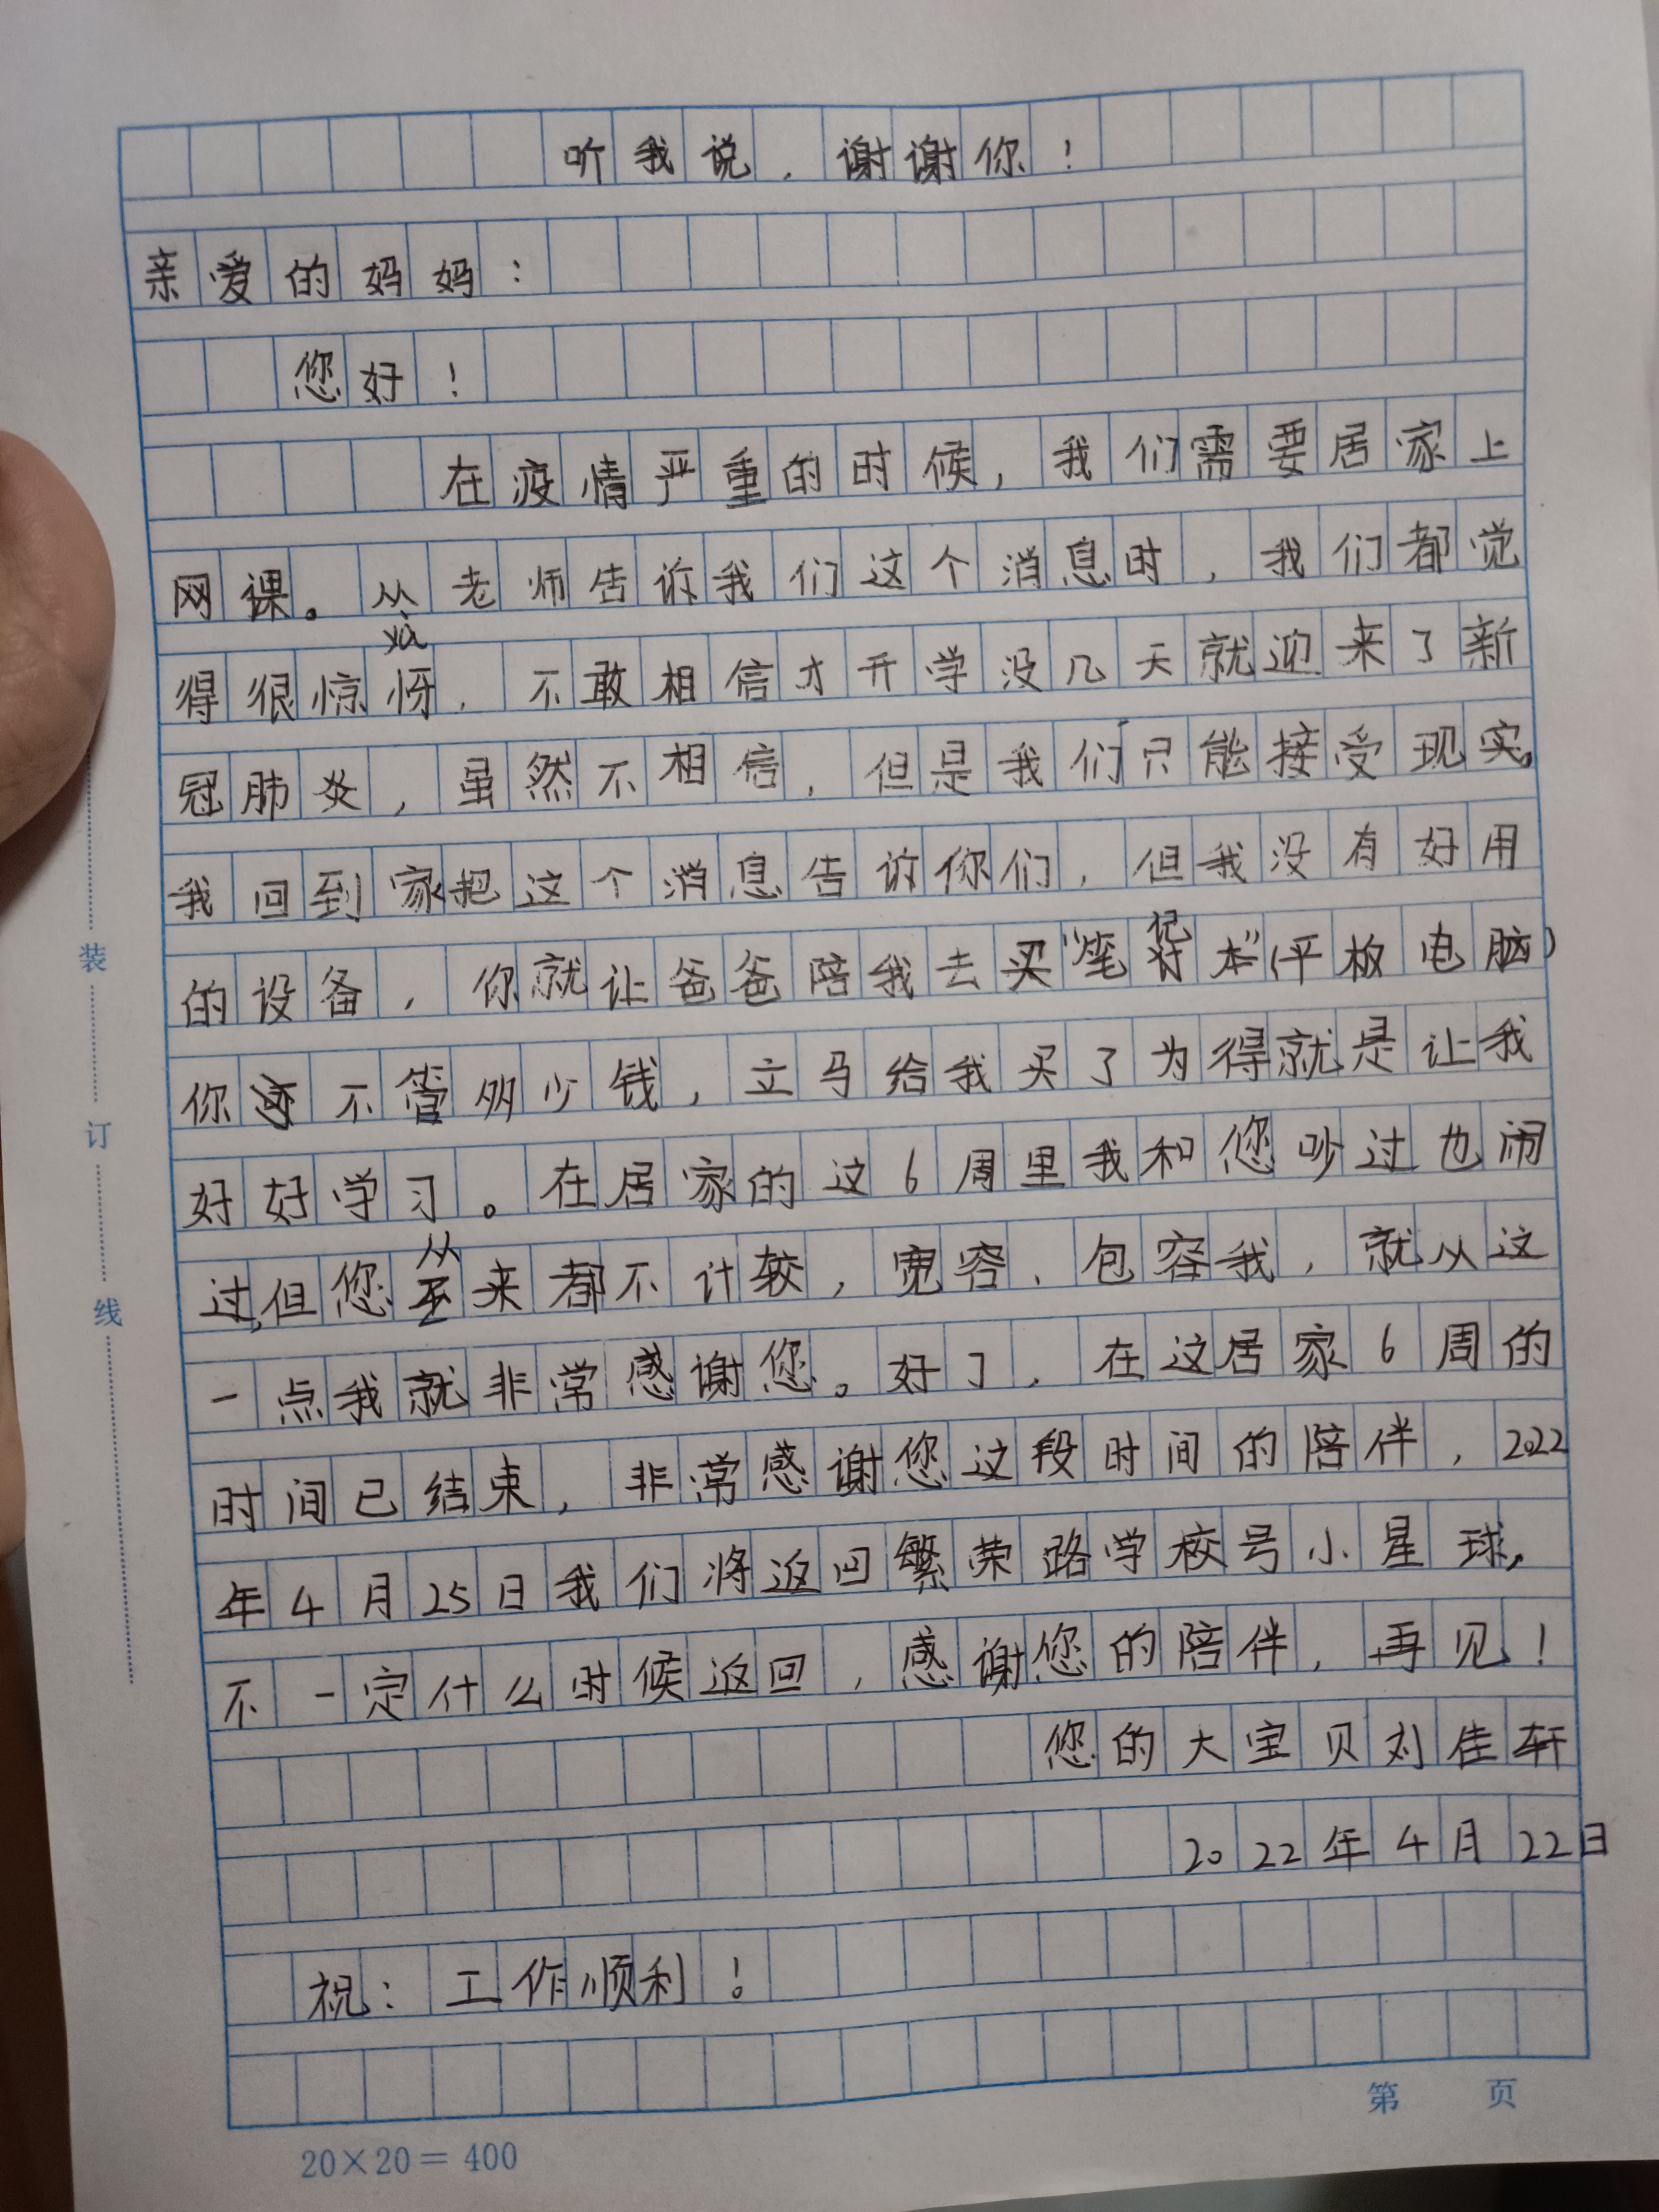 听我说，谢谢你！
亲爱的妈妈：
您好！
在疫情严重的时候，我们需要居家上
网课。从老师告诉我们这个消息时，我们都觉
得很惊讶，不敢相信才开学没几天就迎来了新
冠肺炎，虽然不相信，但是我们只能接受现实。
我回到家把这个消息告诉你们，但我没有好用
的设备，你就让爸爸陪我去买“笔记本”(平板电脑)
你不管多少钱，立马给我买了为得就是让我
好好学习。在居家的这6周里我和您吵过也闹
过，但您从来都不计较，宽容、包容我，就从这
一点我就非常感谢您。好了，在这居家6周的
时间已结束，非常感谢您这段时间的陪伴，2022
年4月25日我们将返回繁荣路学校号小星球，
不一定什么时候返回，感谢您的陪伴，再见！
您的大宝贝刘佳轩
2022年4月22日
祝：工作顺利！
装
订
线
第 页
20×20＝400